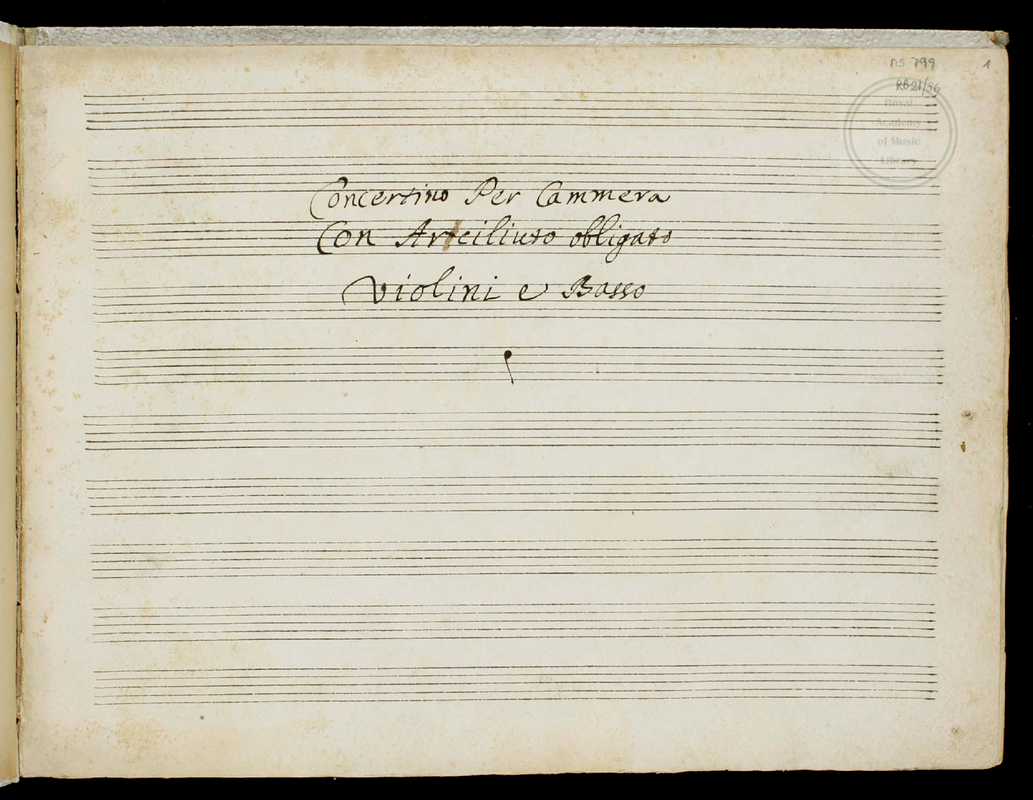 MS 799
1
Royal
Academy
of Music
Library
Concertino Per Cammera
Con Arciliuto obbligato
Violini e Basso